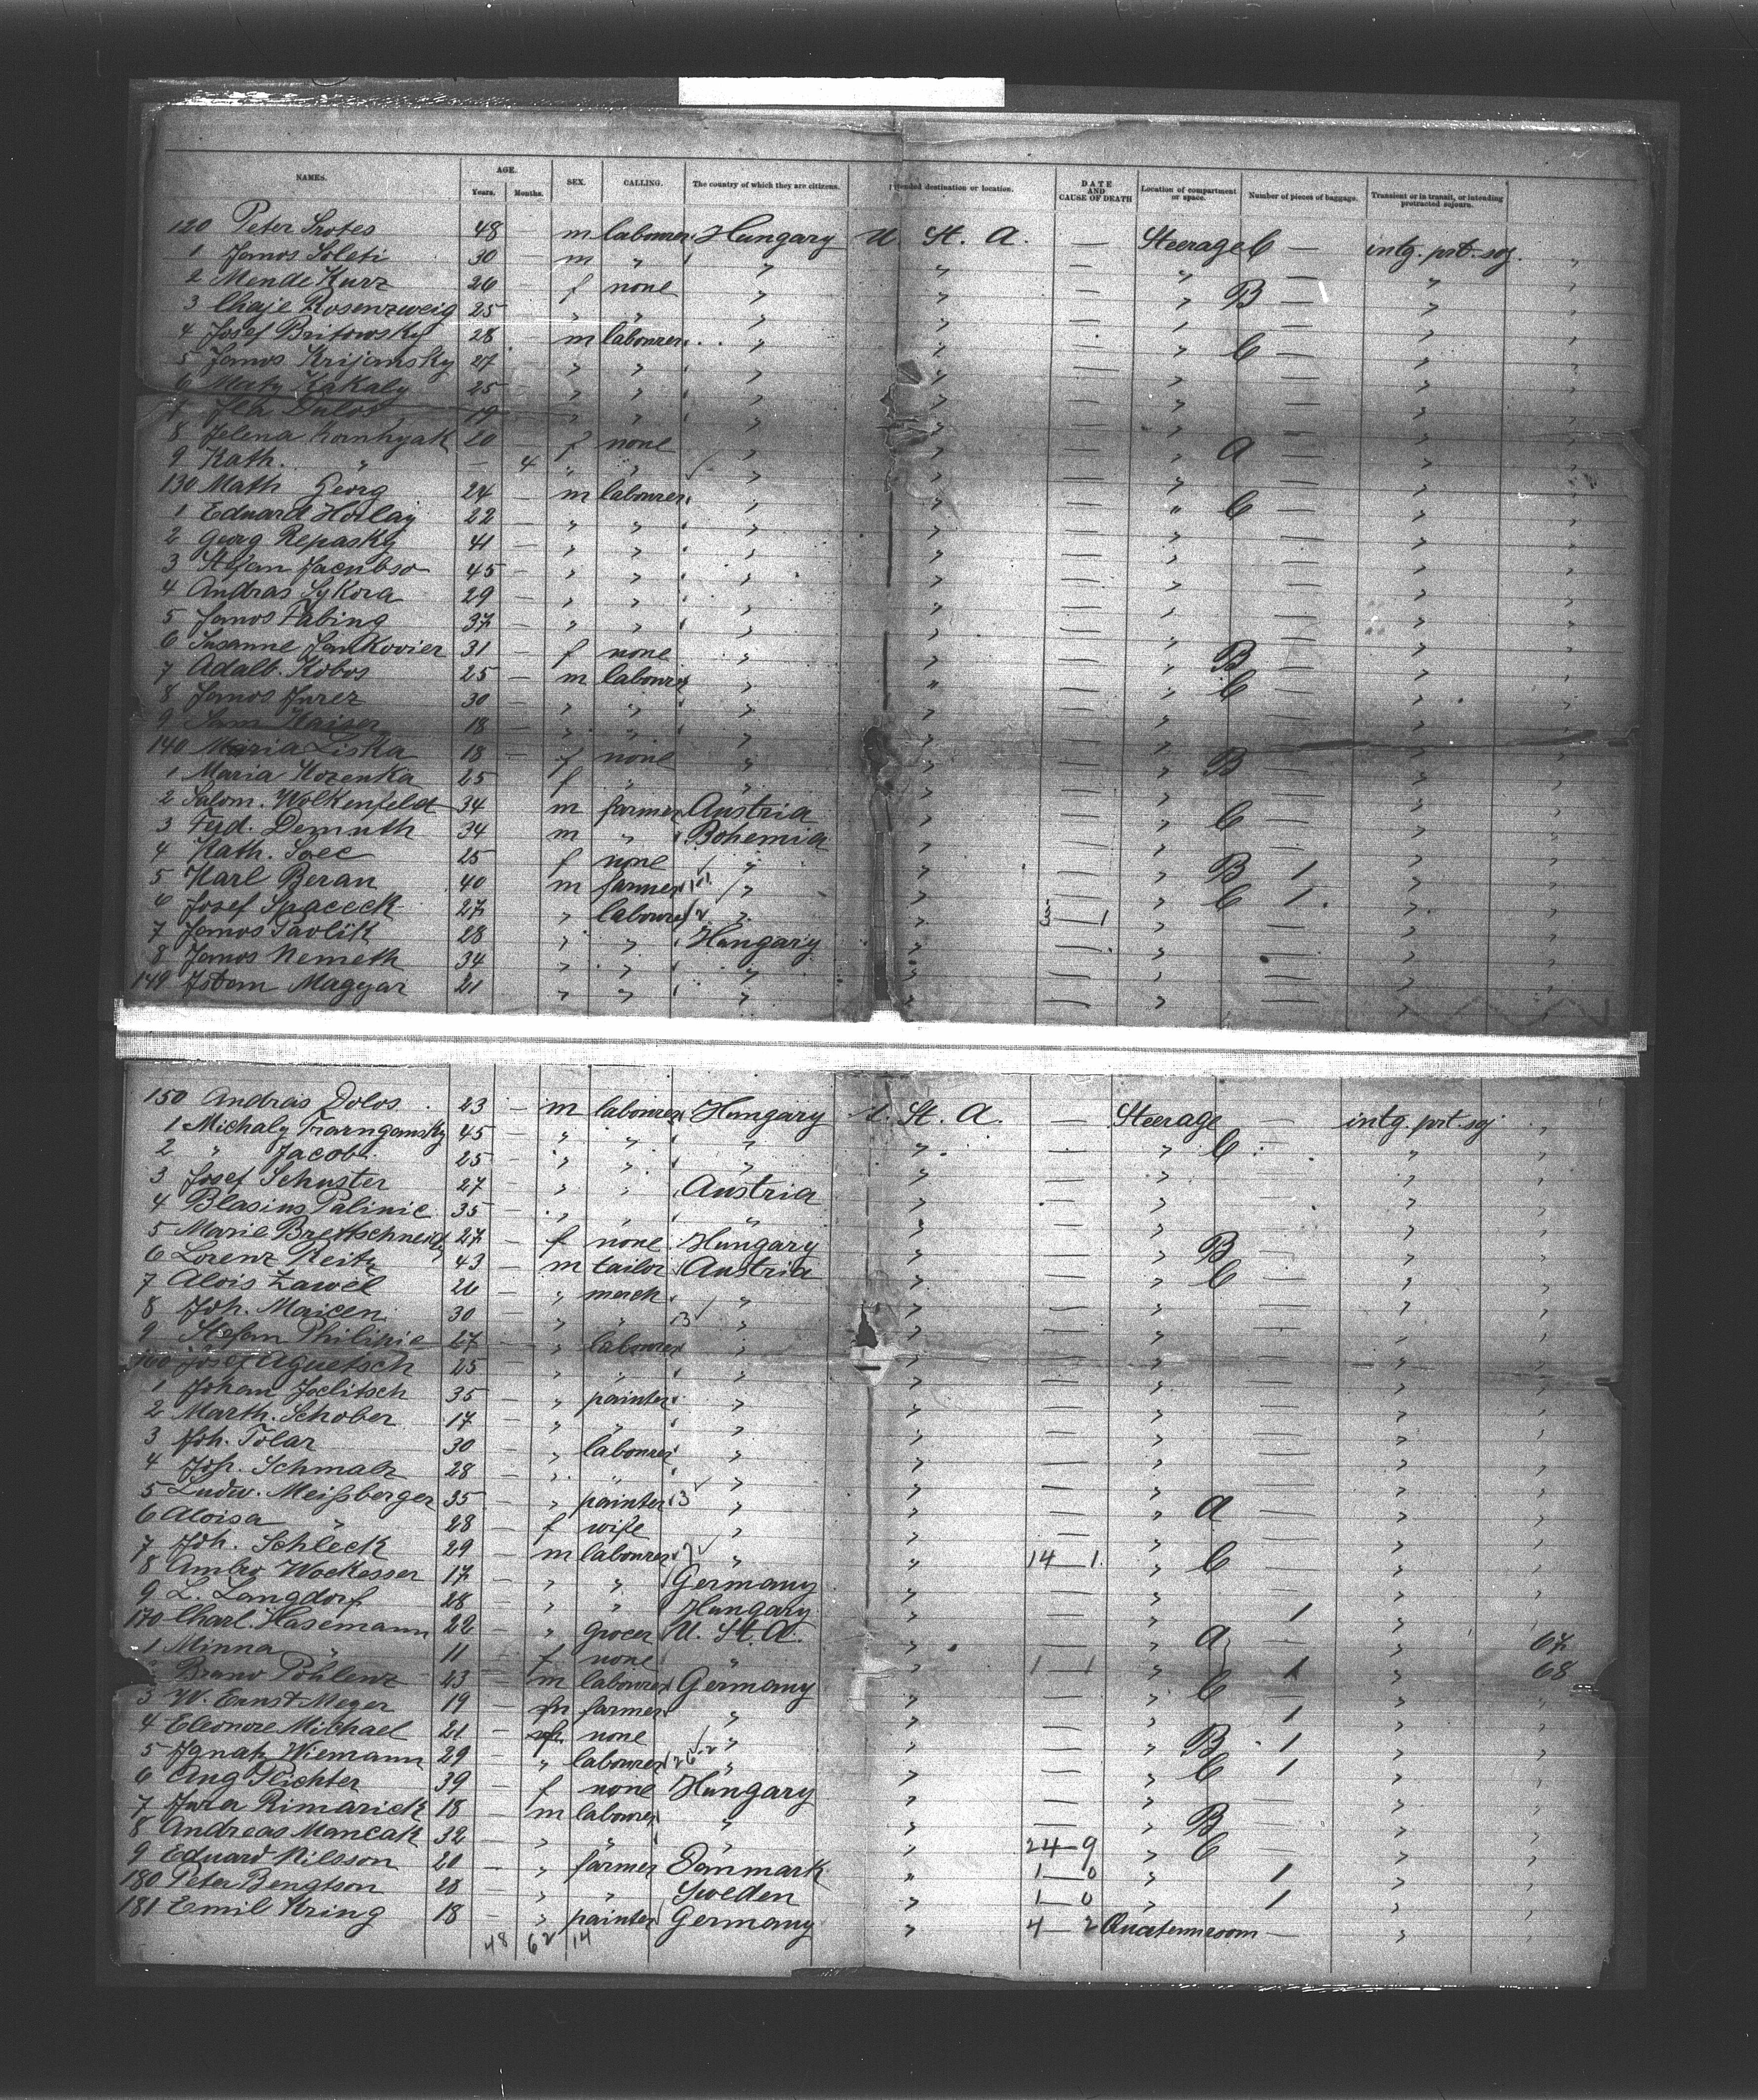 NAMES. AGE. Years. Months. SEX. CALLING. The country of which they are citizens. Intended destination or location. DATE AND CAUSE OF DEATH Location of compartment or space. Number of pieces of baggage. Transient or in transit, or intending protracted sojourn.
120 Peter Protes 48 — m labourer Hungary U. St. A. — Steerage C — intg. prt. soj. "
1 Janos Soleti 30 — m " " " — " — " "
2 Mende Kurz 26 f none " " — " B — " "
3 Chaje Rosenzweig 25 — " " " " — " — " "
4 Josef Britowsky 28 — m labourer " " — " C — " "
5 Janos Krijansky 27 — " " " " — " — " "
6 Maty Kakaly 25 — " " " " — " — " "
7 19 — " " " " — " — " "
8 Jelena Kornhyak 20 — f none " " — " A — " "
9 Kath. " — 4 " " " " — " — " "
130 Math Georg 24 — m labourer " " — " C — " "
1 Eduard Hoilay 22 — " " " " — " — " "
2 Georg Repasky 41 — " " " " — " — " "
3 Stefan Jacubso 45 — " " " " — " — " "
4 Andras Sykora 29 — " " " " — " — " "
5 Janos Fabing 37 — " " " " — " — " "
6 Susanne Jankovier 31 — f none " " — " B — " "
7 Adalb. Kobos 25 — m labourer " " — " C — " "
8 Janos Jurez 30 — " " " " — " — " "
9 Kaiser 18 — " " " " — " — " "
140 Maria Liska 18 — f none " " — " B — " "
1 Maria Kozenka 25 — f " " " — " — " "
2 Salom. Wolkenfeld 34 m farmer Austria " — " C — " "
3 Ferd. Demuth 34 — m " Bohemia " — " — " "
4 Kath. Soec 25 — f none " " — " B 1 " "
5 Karl Beran 40 — m farmer " " — " C 1 " "
6 Josef Spaceck 27 — " labourer " " 3—1 " — " "
7 Janos Pavlik 28 — " " Hungary " — " — " "
8 Janos Nemeth 34 — " " " " — " — " "
149 Istvan Magyar 21 — " " " " — " — " "
150 Andras Dolos 23 — m labourer Hungary U. St. A. — Steerage — intg. prt. soj "
1 Michaly Trarngansky 45 — " " " " — " C — " "
2 " Jacob 25 — " " " " — " — " "
3 Josef Schuster 27 — " " Austria " — " — " "
4 Blasius Palinic 35 — " " " " — " — " "
5 Marie Brettschneid 27 — f none Hungary " — " B — " "
6 Lorenz Reitz 43 — m tailor Austria " — " C — " "
7 Alois Zawel 26 — " merch. " " — " — " "
8 Joh. Maicen 30 — " " 3 " " — " — " "
9 Stefan Philipic 27 — " labourer " " — " — " "
160 Josef Aguetsch 25 — " " " " — " — " "
1 Johan Joelitsch 35 — " painter " " — " — " "
2 Marth. Schober 17 — " " " " — " — " "
3 Joh. Tolar 30 — " labourer " " — " — " "
4 Joh. Schmalz 28 — " " " " — " — " "
5 Ludw. Meißberger 35 — " painter 3 " " — " A — " "
6 Aloisa " 28 — f wife " " — " — " "
7 Joh. Schleck 29 — m labourer " " 14—1 " C — " "
8 Ambro Wockesser 17 — " " Germany " — " — " "
9 L. Langdorf 28 — " " Hungary " — " 1 " "
170 Charl. Hasemann 22 — " grocer U. St. A. " — " A — " 67
1 Minna " 11 — f none " " — " — " 68
2 Bruno Pohlenz 23 — m labourer Germany " 1—1 " C 1 " "
3 W. Ernst Meyer 19 — m farmer " " — " 1 " "
4 Eleonore Michael 21 — f none " " — " B 1 " "
5 Ignatz Wiemann 29 — " labourer " " — " C 1 " "
6 Aug Plichter 39 — f none Hungary " — " — " "
7 Jura Rimarick 18 — m labourer " " — " B — " "
8 Andreas Mancak 32 — " " " " 24—9 " C — " "
9 Eduard Nilsson 20 — " farmer Danmark " 1—0 " 1 " "
180 Peter Bengtson 28 — " " Sweden " 1—0 " 1 " "
181 Emil Kring 18 — " painter Germany " 4—2 — " "
48 62 14